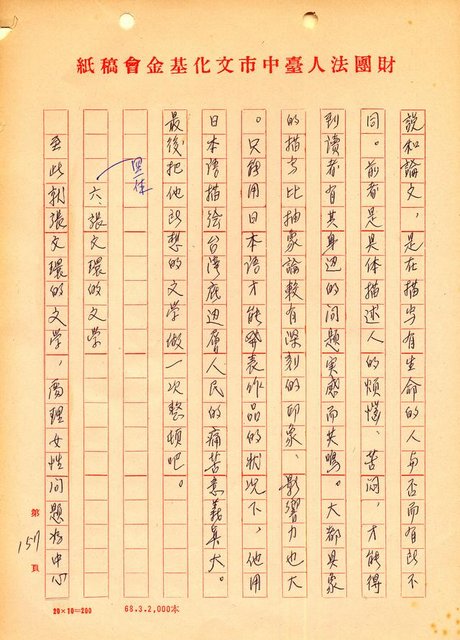 財團法人臺中市文化基金會稿紙
說和論文，是在描写有生命的人与否而有所不
同。前者是具体描述人的煩惱、苦悶，才能得
到讀者有其身边的问題実感而共鳴。大都具象
的描写比抽象論較有深刻的印象、影響力也大
。只能用日本语才能發表作品的狀況下，他用
日本语描绘台湾底边層人民的痛苦意義莫大。
最後把他所想的文学做一次整頓吧。
黑体
六、張文環的文学
至此就張文環的文学，處理女性问題为中心
第157頁
20×10=200
68.3.2,000本